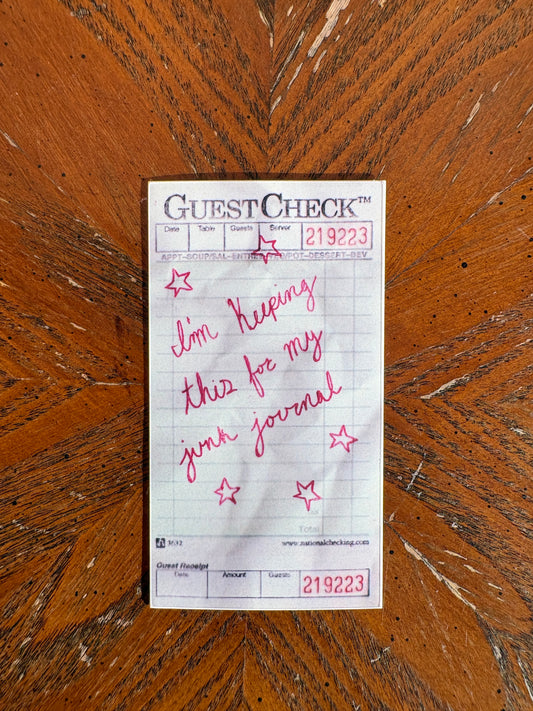 GUEST CHECK™
Date Table Guests Server 219223
APPT-SOUP/SAL-ENTREE-VEG/POT-DESSERT-BEV
I'm Keeping
this for my
junk journal
Total
3632 www.nationalchecking.com
Guest Receipt
Date Amount Guests 219223